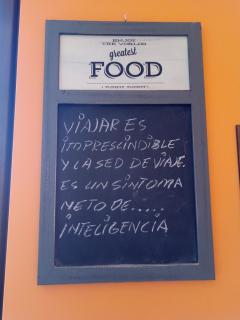 ENJOY
THE WORLDS
greatest
FOOD
VIAJAR ES
IMPRESCINDIBLE
Y LA SED DE VIAJE.
ES UN SINTOMA
NETO DE.....
INTELIGENCIA